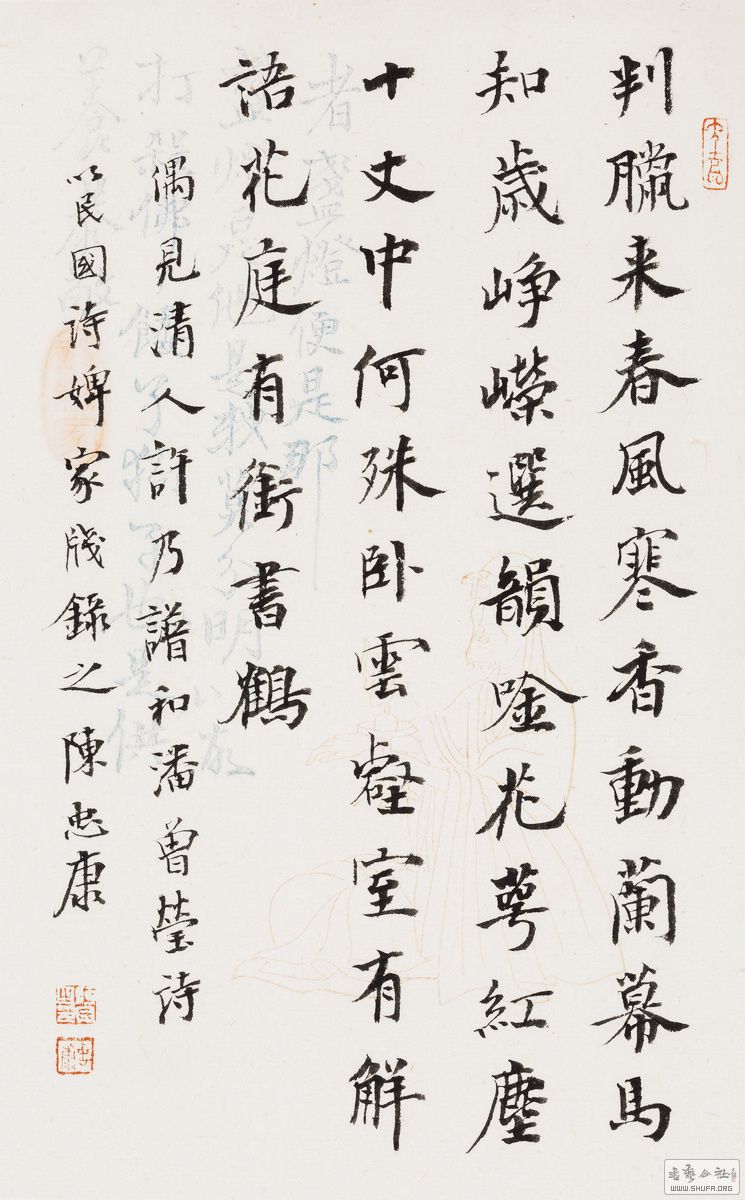 判臘来春風寒香動蘭幕馬
知歲崢嶸選韻唫花萼紅塵
十丈中何殊卧雲壑室有解
語花庭有銜書鶴
偶見清人許乃譜和潘曾瑩詩
以民國詩婢家牋錄之陳忠康
者盞燈便是那
WWW.SHUFA.ORG